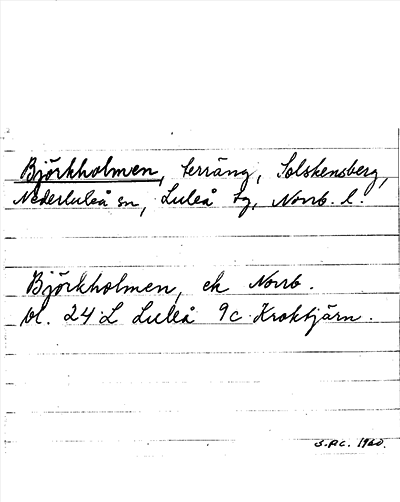 Björkholmen, terräng, Solskensberg,
Nederluleå sn, Luleå tg, Norrb. l.
Björkholmen, ek Norrb.
bl. 24 L Luleå 9c Kroktjärn.
1960.